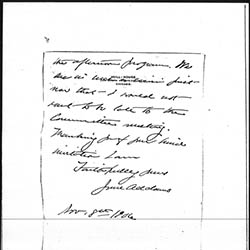 the afternoon program. We
are in
now that I would not
want to be late to the
Committee meeting.
Thanking you for your kind
invitation I am
Faithfully yours
Jane Addams
Nov. 8th 1906